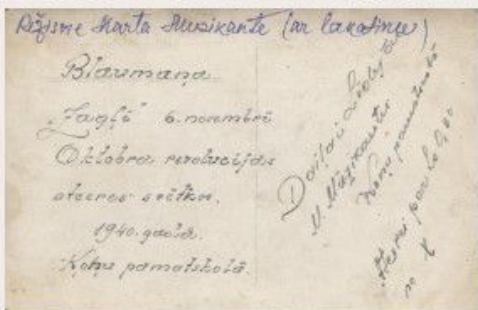 Režisore Marta Muzikante (ar lakatiņu)
Blaumaņa
„Zagļi" 6. novembrī
Oktobra revolūcijas
atceres svētku.
1940. gadā.
Koņu pamatskolā.
Daiļai
M. Muzikante
Koņu pamatskolā